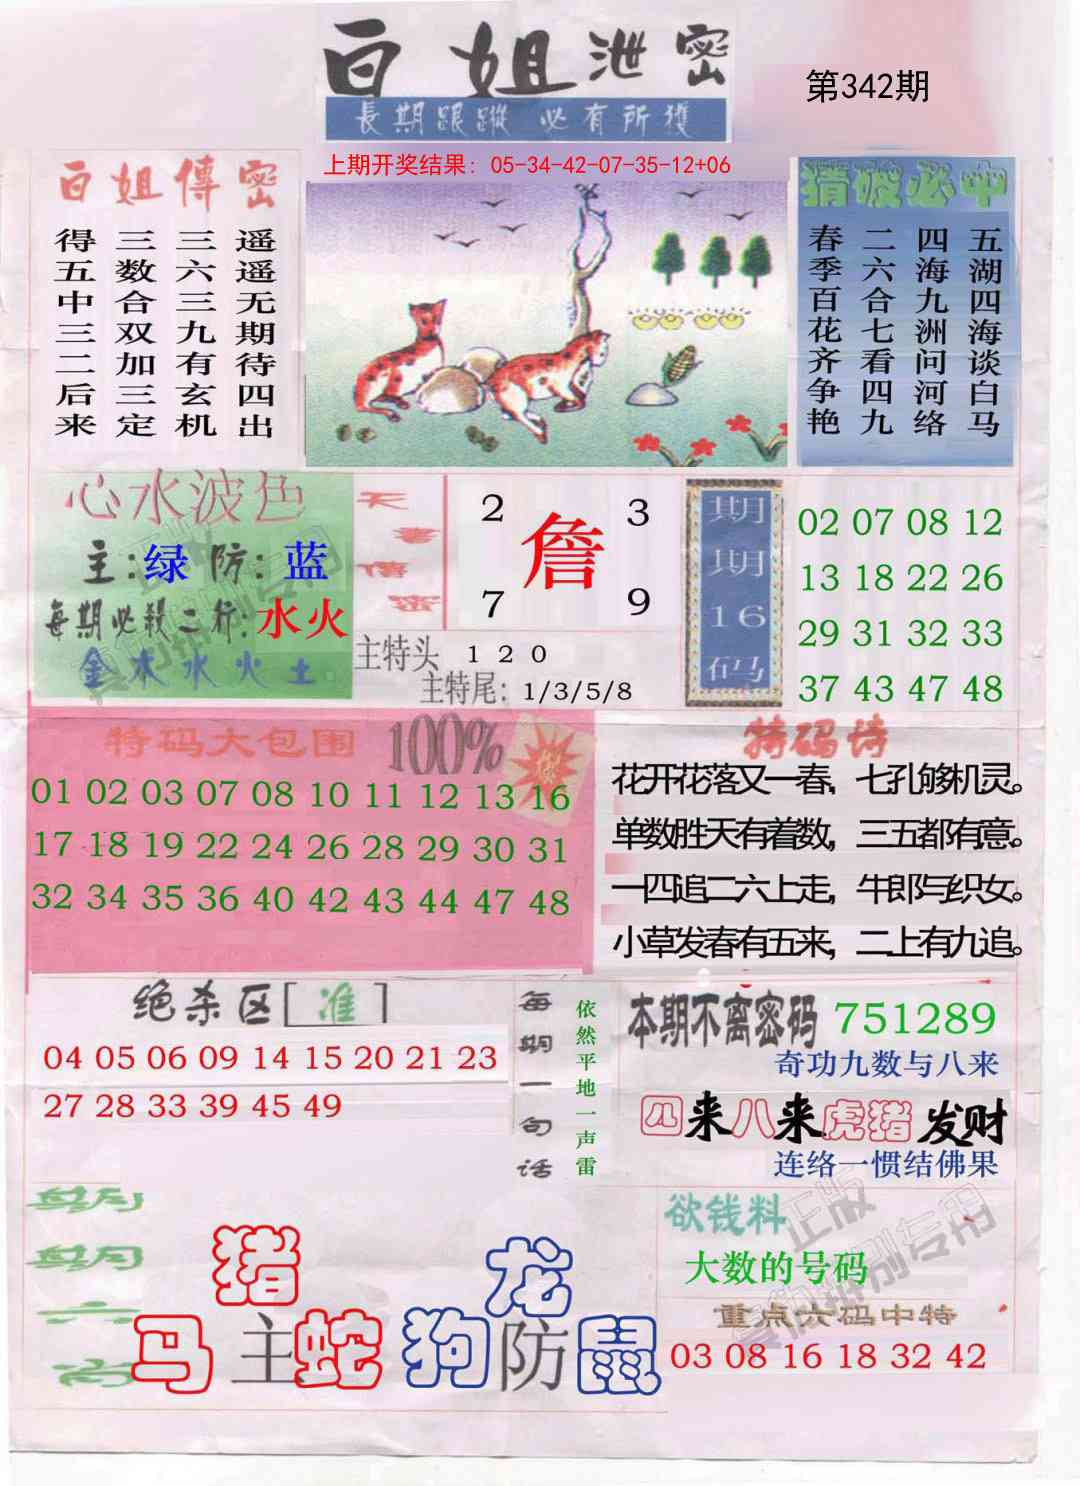 白姐泄密
第342期
長期跟蹤 必有所獲
上期开奖结果：05-34-42-07-35-12+06
白姐傳密
遥遥无期待四出
三六三九有玄机
三数合双加三定
得五中三二后来
猜破必中
五湖四海谈白马
四海九洲问河络
二六合七看四九
春季百花齐争艳
心水波色
主:绿 防:蓝
每期必殺二行:水火
金木水火土
天書傳密
2 3
詹
7 9
主特头 1 2 0
主特尾: 1/3/5/8
期期16码
02 07 08 12
13 18 22 26
29 31 32 33
37 43 47 48
特码大包围 100%
01 02 03 07 08 10 11 12 13 16
17 18 19 22 24 26 28 29 30 31
32 34 35 36 40 42 43 44 47 48
特码诗
花开花落又一春，七孔够机灵。
单数胜天有着数，三五都有意。
一四追二六上走，牛郎与织女。
小草发春有五来，二上有九追。
绝杀区[准]
04 05 06 09 14 15 20 21 23
27 28 33 39 45 49
每期一句话
依然平地一声雷
本期不离密码 751289
奇功九数与八来
四来八来虎猪发财
连络一惯结佛果
期期六肖
猪
马主蛇
龙
狗防鼠
欲钱料
大数的号码
重点六码中特
03 08 16 18 32 42